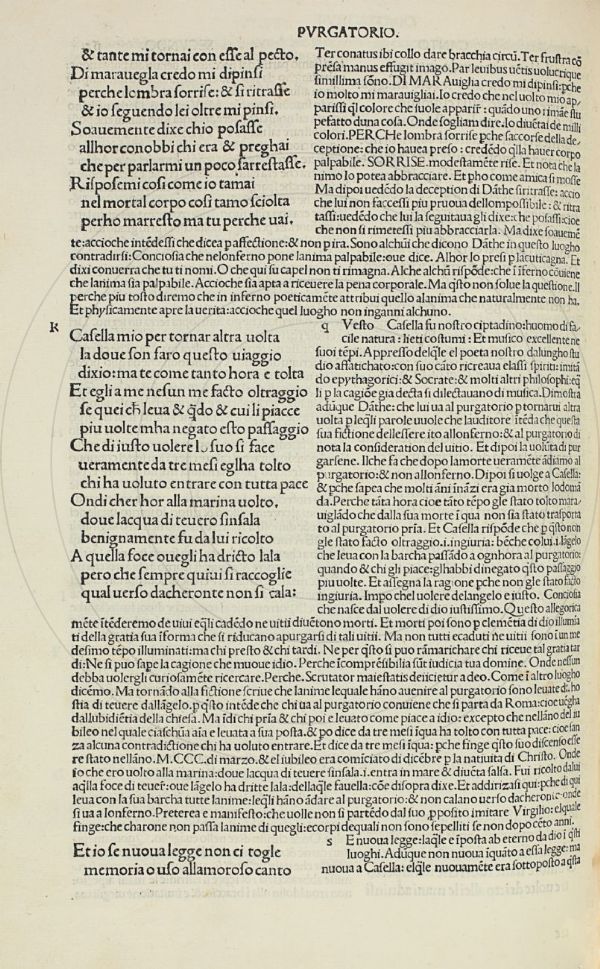 PVRGATORIO.
& tante mi tornai con esse al pecto.
Di marauegla credo mi dipinsi
perche lombra sorrise: & si ritrasse
& io seguendo lei oltre mi pinsi.
Soauemente dixe chio posasse
allhor conobbi chi era & preghai
che per parlarmi un poco sarrestasse.
Risposemi cosi come io tamai
nel mortal corpo cosi tamo sciolta
perho marresto ma tu perche uai.
Ter conatus ibi collo dare bracchia circũ. Ter frustra cõ
prẽsa manus effugit imago. Par leuibus uẽtis uolucrique
simillima sõno. DI MARAuigha credo mi dipinsi: pche
io molto mi marauigliai. Io credo che nel uolto mio ap/
parissi ql colore che suole apparir: quãdo uno rimãe stu
pefatto duna cosa. Onde sogliam dire. Io diuẽtai de milli
colori. PERChe lombra sorrise pche saccorse della de/
ceptione: che io hauea preso: credẽdo qlla hauer corpo
palpabile. SORRISE. modestamẽte rise. Et nota che la
nimo lo potea abbracciare. Et pho come amica si mosse
Ma dipoi uedẽdo la deception di Dãthe si ritrasse: accio
che lui non faccessi piu pruoua dellompossibile: & ritra
tassi: uedẽdo che lui la seguitaua gli dixe: che posassi: cioe
che non si rimetessi piu abbracciarla. Ma dixe soauemẽ
te: accioche intẽdessi che dicea p affectione: & non p ira. Sono alchũi che dicono Dãthe in questo luogho
contradirsi: Conciosia che nelonferno pone lanima palpabile: oue dice. Alhor lo presi p la cuticagna. Et
dixi conuerra che tu ti nomi. O che qui su capel non ti rimagna. Alche alchũ rispõde: che ĩ ĩferno cõuiene
che lanima sia palpabile. Accioche sia apta a riceuere la pena corporale. Ma qsto non solue la questione. Il
perche piu tosto diremo che in inferno poeticamẽte attribui quello alanima che naturalmente non ha.
Et physicamente apre la uerita: accioche quel luogho non inganni alchuno.
K
Casella mio per tornar altra uolta
la doue son saro questo uiaggio
dixio: ma te come tanto hora e tolta
Et egli a me nesun me facto oltraggio
se quei ch̃ leua & qdo & cui li piacce
piu uolte mha negato esto passaggio
Che di iusto uolere lo suo si face
ueramente da tre mesi eglha tolto
chi ha uoluto entrare con tutta pace
Ondi cher hor alla marina uolto,
doue lacqua di teuero sinsala
benignamente fu da lui ricolto
A quella foce ouegli ha dricto lala
pero che sempre quiui si raccoglie
qual uerso dacheronte non si cala:
q Vesto Casella fu nostro ciptadino: huomo di fa/
cile natura: lieti costumi: Et musico excellente ne
suoi tẽpi. Appresso delqle el poeta nostro dalungho stu
dio affaticato: con suo cãto ricreaua elassi spiriti: imitã
do epythagorici: & Socrate: & molti altri philosophi: eq
li p la cagiõe gia decta si dilectauano di musica. Dimostra
adũque Dãthe: che lui ua al purgatorio p tornarui altra
uolta p leqli parole uuole che lauditore ĩtẽda che questa
sua fictione dellessere ito allonferno: & al purgatorio di
nota la consideration del uitio. Et dipoi la uolũta di pur
garsene. Ilche fa che dopo lamorte ueramẽte ãdiamo al
purgatorio: & non allonferno. Dipoi si uolge a Casella:
& pche sapea che molti ãni inãzi era gia morto lodomã
da. Perche tãta hora cioe tãto tẽpo gle stato tolto mara/
uigliãdo che dalla sua morte ĩ qua non sia stato trasporta
to al purgatorio pria. Et Casella rispõde che p qsto non
gle stato facto oltraggio .i. ingiuria: bẽche colui .i. lãgelo
che leua con la barcha passãdo a ognhora al purgatorio:
quando & chi gli piace: glhabbi dinegato qsto passaggio
piu uolte. Et assegna la ragione pche non gle stato facto
ingiuria. Impo chel uolere delangelo e iusto. Conciosia
che nasce dal uolere di dio iustissimo. Questo allegorica
mẽte ĩtẽderemo de uiui eqli cadẽdo ne uitii diuẽtono morti. Et morti poi sono p clemẽtia di dio illumia
ti della gratia sua ĩforma che si riducano apurgarsi di tali uitii. Ma non tutti ecaduti ne uitii sono ĩ un me
desimo tẽpo illuminati: ma chi presto & chi tardi. Ne per qsto si puo rãmarichare chi riceue tal gratia tar
di: Ne si puo sape la cagione che muoue idio. Perche ĩcomprẽsibilia sũt iudicia tua domine. Onde nessun
debba uolergli curiosamẽte ricercare. Perche. Scrutator maiestatis deiicietur a deo. Come ĩ altro luogho
dicẽmo. Ma tornãdo alla fictione scriue che lanime lequale hãno auenire al purgatorio sono leuate da ho
stia di teuere dallãgelo. p qsto intẽde che chi ua al purgatorio conuiene che si parta da Roma: cioe uẽgha
dallubidiẽtia della chiesa. Ma ĩdi chi pria & chi poi e leuato come piace a idio: excepto che nellãno del iu
bileo nel quale ciaschũa aĩa e leuata a sua posta. & po dice da tre mesi ĩqua ha tolto con tutta pace: cioe san
za alcuna contradictione chi ha uoluto entrare. Et dice da tre mesi ĩqua: pche finge qsto suo discenso esse
re stato nellãno. M.CCC. di marzo. & el iubileo era comiciato di dicẽbre p la natiuita di Christo. Onde
io che ero uolto alla marina: doue lacqua di teuere sinsala .i. entra in mare & diuẽta salsa. Fui ricolto da lui
aqlla foce di teuer: oue lãgelo ha dritte lala: dellaqle fauella: cõe disopra dixe. Et addirizasi qui: pche di qui
leua con la sua barcha tutte lanime: leqli hãno ãdare al purgatorio: & non calano uerso dacheronte: onde
si ua a lonferno. Preterea e manifesto: che uolle non si partẽdo dal suo pposito imitare Virgilio: elquale
finge: che charone non passa lanime di quegli: ecorpi dequali non sono sepelliti se non dopo cẽto anni.
Et io se nuoua legge non ci togle
memoria o uso allamoroso canto
s E nuoua legge: laqle e ĩposta ab eterno da dio ĩ qsti
luoghi. Adũque non nuoua ĩquãto a essa legge: ma
nuoua a Casella: elqle nuouamẽte era sottoposto a qsta